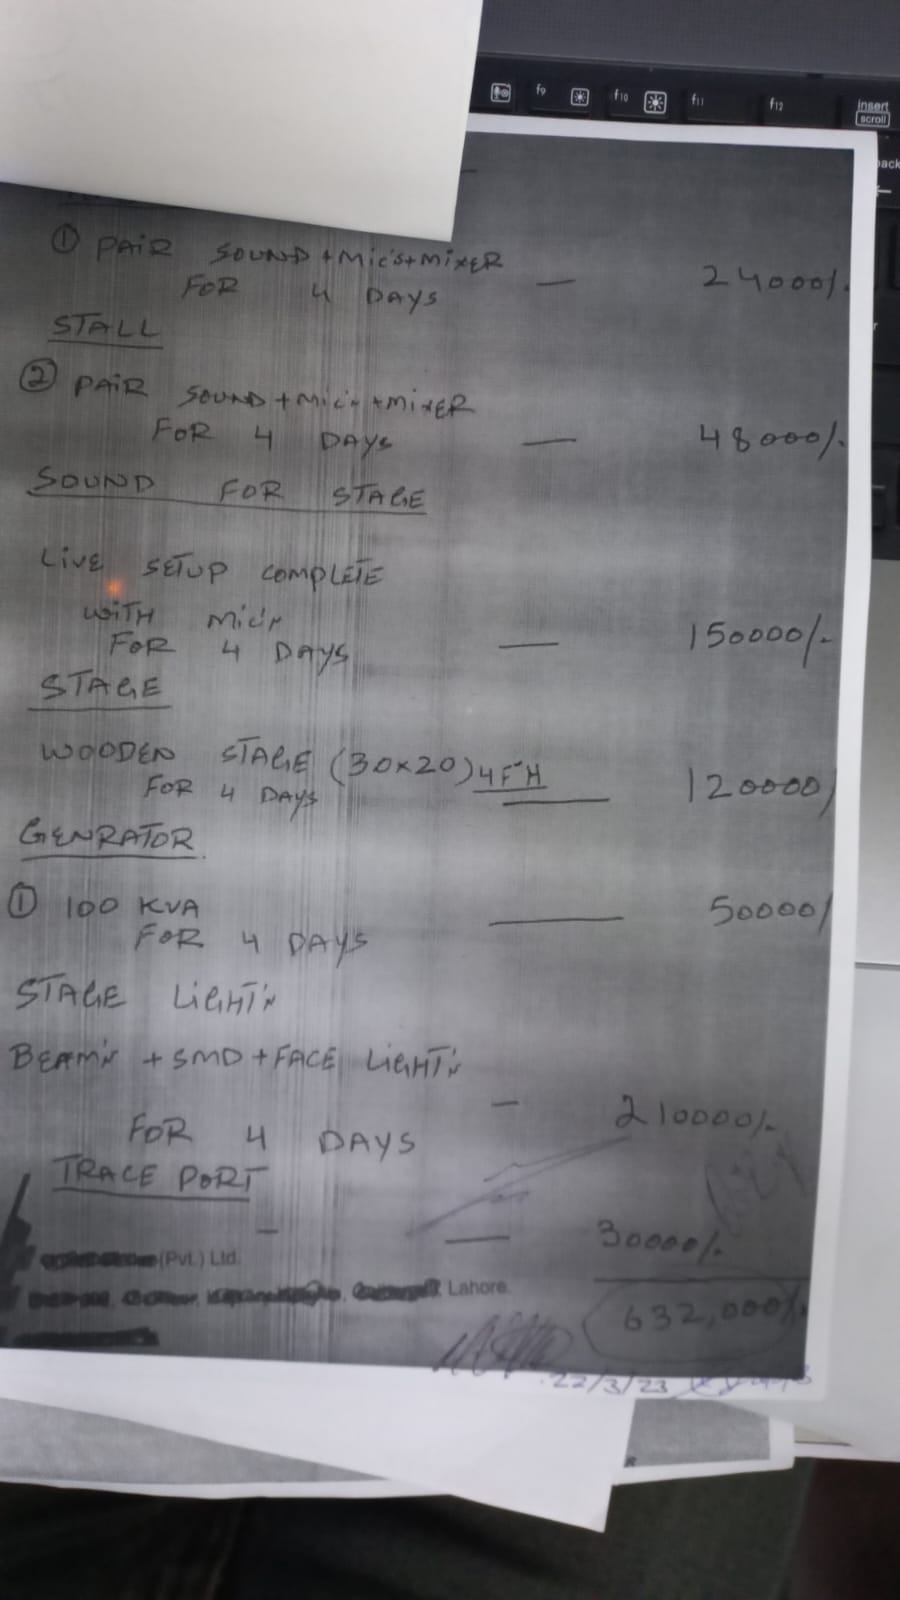 f9
f10
f11
f12
insert
scroll
① PAIR SOUND + MIC'S + MIXER
FOR 4 DAYS — 24000/.
STALL
② PAIR SOUND + MIC'S + MIXER
FOR 4 DAYS — 48000/.
SOUND FOR STAGE
LIVE SETUP COMPLETE
WITH MIC'S
FOR 4 DAYS — 150000/-
STAGE
WOODEN STAGE (30x20) 4F"H
FOR 4 DAYS — 120000/
GENRATOR
① 100 KVA — 50000/
FOR 4 DAYS
STAGE LIGHT'S
BEAM'S + SMD + FACE LIGHT'S
— 210000/-
FOR 4 DAYS
TRACE PORT
— — 30000/-
(Pvt.) Ltd.
Lahore.
632,000/.
22/3/23